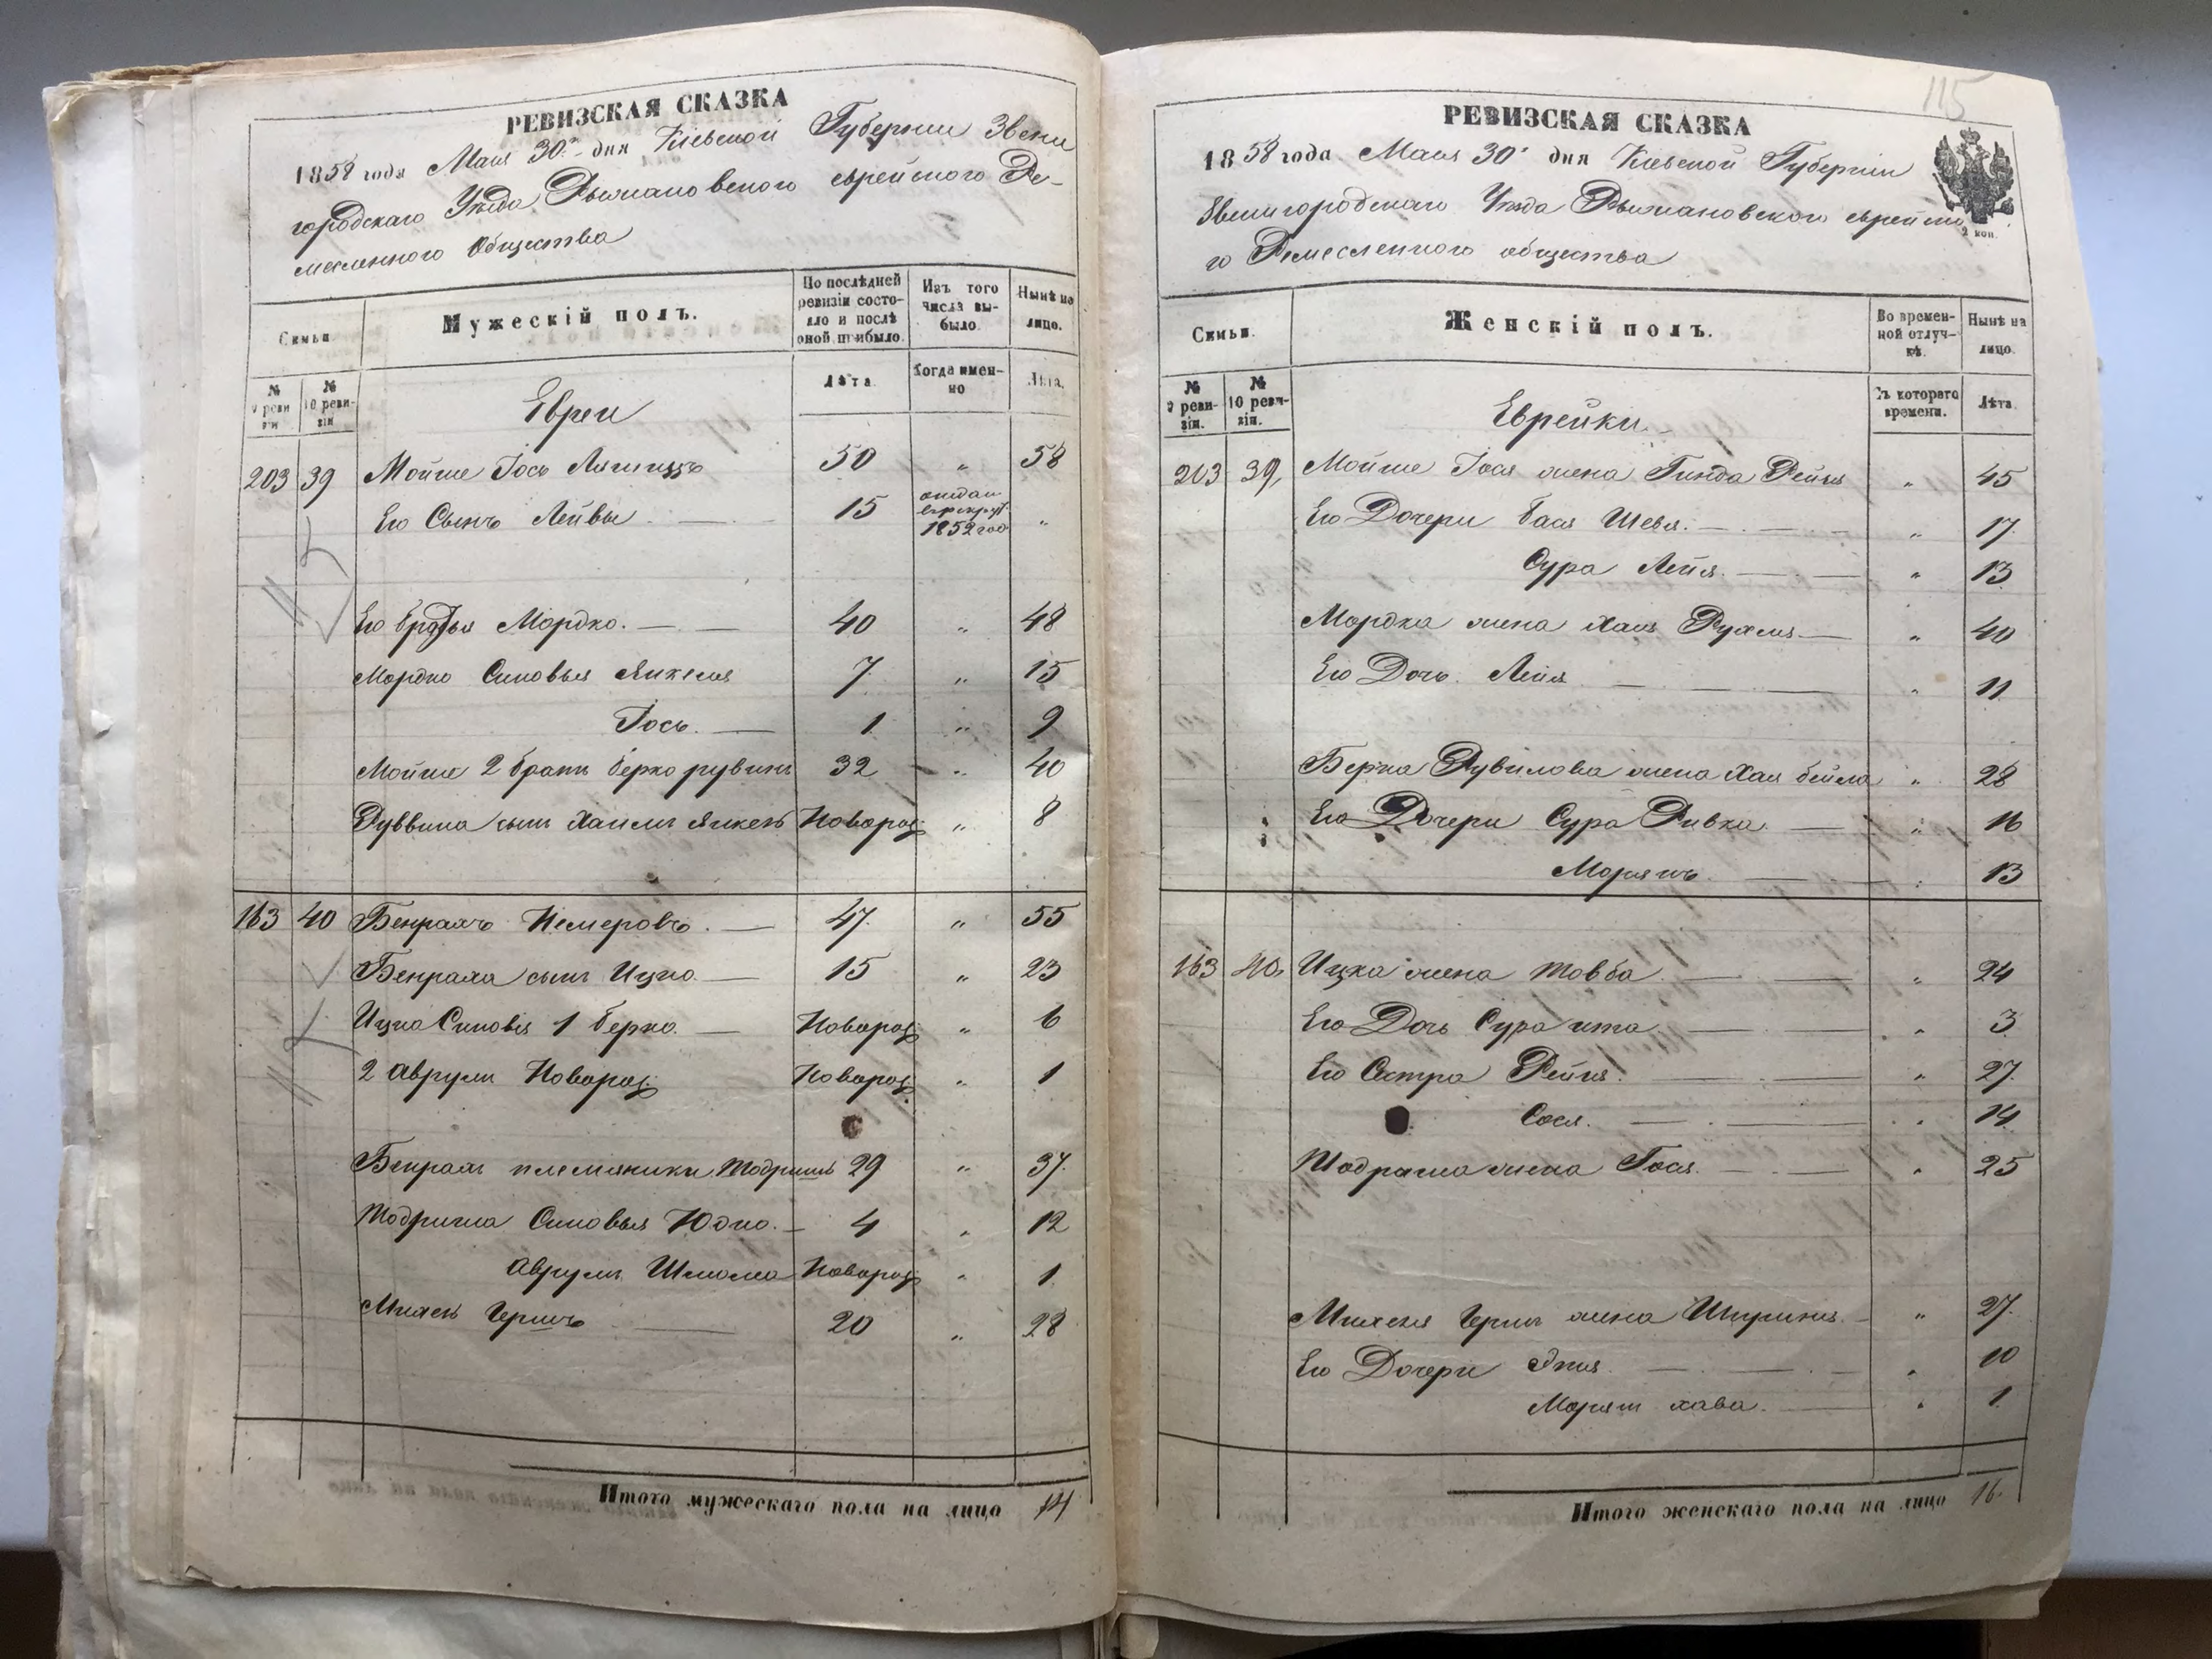 РЕВИЗСКАЯ СКАЗКА
1858 года Мая 30го дня Кіевской Губерніи Звени
городскаго Уѣзда Рыжановского еврейского Ре-
месленного Общества
Семьи
Мужескій полъ.
По послѣдней ревизіи состояло и послѣ оной прибыло.
Изъ того числа выбыло.
Нынѣ на лицо.
№ 9 ревизіи
№ 10 ревизіи
Лѣта
Когда именно
Лѣта.
Евреи
203 39 Мойше Іось 50 „ 58
Его Сынъ Лейвы 15 отдан в рекрут. 1852 год „
Его братья Мордко. 40 „ 48
Мордко Синовья Янкеля 7 „ 15
Іось. 1 „ 9
Мойше 2 братъ берко рувинъ 32 „ 40
Руввина сынъ Хаимъ Янкель Новорож: „ 8
163 40 Бенрамъ Немеровъ. 47. „ 55
Бенрама сынъ Ицко 15 „ 23
Ицко Синовья 1 берко. Новорож: „ 6
2 Аврумъ Новорож: Новорож: „ 1
Бенрамъ племяники Шодришъ 29 „ 37.
Шодриша Синовья Юдко. 4 „ 12
Аврумъ Шлиома Новорож: „ 1
Михель Гершъ 20 „ 28
Итого мужескаго пола на лицо 14
115
РЕВИЗСКАЯ СКАЗКА
1858 года Мая 30го дня Кіевской Губерніи
Звенигородскаго Уѣзда Рыжановского еврейско
го Ремесленного общества
2 коп.
Семьи.
Женскій полъ.
Во временной отлучкѣ.
Нынѣ на лицо.
№ 9 ревизіи.
№ 10 ревизіи.
Съ котораго времени.
Лѣта.
Еврейки.
203 39, Мойше Іося жена Гинда Рейзя „ 45
Его Дочери бася Шевя. „ 17.
Сура Лейя. „ 13
Мордка жена Хая Рухля „ 40
Его Дочь. Лейя „ 11
Берка Рувилова жена Хая бейла „ 28
Его Дочери Сура Ривка „ 16
Морямъ „ 13
163 40, Ицка жена Товба „ 24
Его Дочь Сура ита „ 3
Его Сестра Рейзя. „ 27.
Сося. „ 14
Шодраша жена Гося. „ 25
Михеля Герша жена „ 27.
Его Дочери Эния. „ 10
Морям хава. „ 1
Итого женскаго пола на лицо 16.